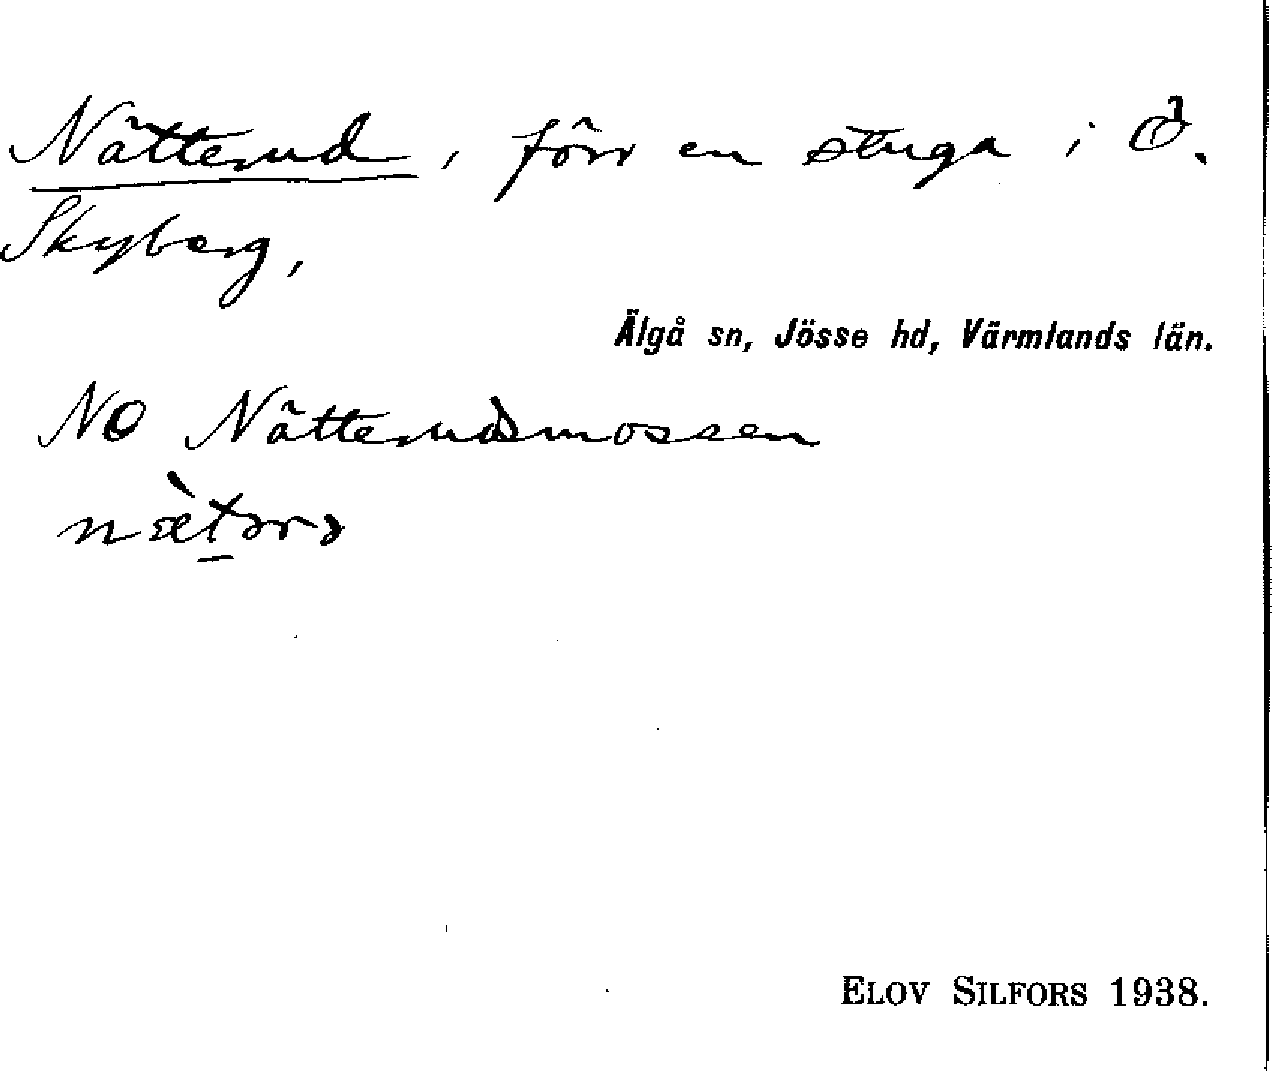 Nätterud, förr en stuga i Ö.
Skyberg,
Älgå sn, Jösse hd, Värmlands län.
NO Nätterudsmossen
ELOV SILFORS 1938.